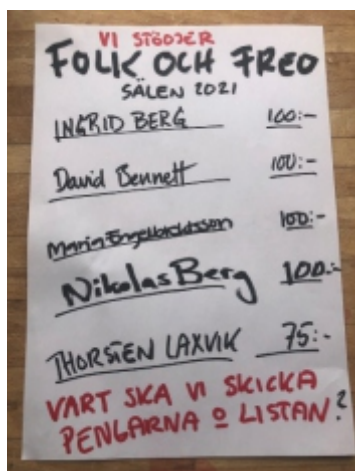 VI STÖDJER
FOLK OCH FRED
SÄLEN 2021
INGRID BERG 100:-
David Bennett 100:-
Maria Engelbrektsson 100:-
Nikolas Berg 100:-
THORSTEN LAXVIK 75:-
VART SKA VI SKICKA
PENGARNA O LISTAN?